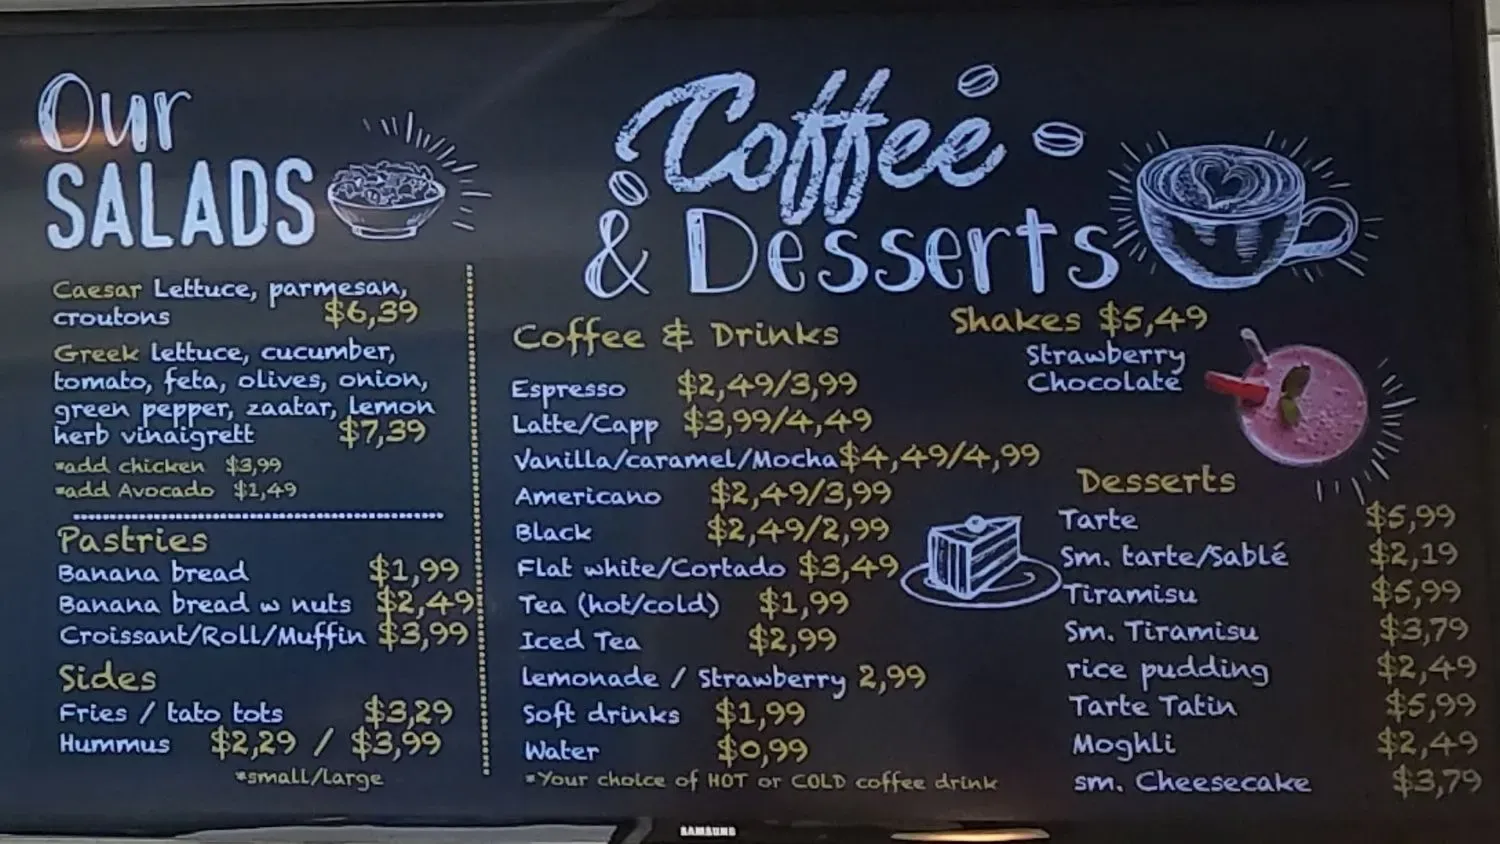 Our
SALADS
Caesar Lettuce, parmesan,
croutons $6,39
Greek lettuce, cucumber,
tomato, feta, olives, onion,
green pepper, zaatar, lemon
herb vinaigrett $7,39
*add chicken $3,99
*add Avocado $1,49
Pastries
Banana bread $1,99
Banana bread w nuts $2,49
Croissant/Roll/Muffin $3,99
Sides
Fries / tato tots $3,29
Hummus $2,29 / $3,99
*small/large
Coffee
& Desserts
Coffee & Drinks
Espresso $2,49/3,99
Latte/Capp $3,99/4,49
Vanilla/caramel/Mocha $4,49/4,99
Americano $2,49/3,99
Black $2,49/2,99
Flat white/Cortado $3,49
Tea (hot/cold) $1,99
Iced Tea $2,99
Lemonade / Strawberry 2,99
Soft drinks $1,99
Water $0,99
*Your choice of HOT or COLD coffee drink
Shakes $5,49
Strawberry
Chocolate
Desserts
Tarte $5,99
Sm. tarte/Sablé $2,19
Tiramisu $5,99
Sm. Tiramisu $3,79
rice pudding $2,49
Tarte Tatin $5,99
Moghli $2,49
sm. Cheesecake $3,79
SAMSUNG